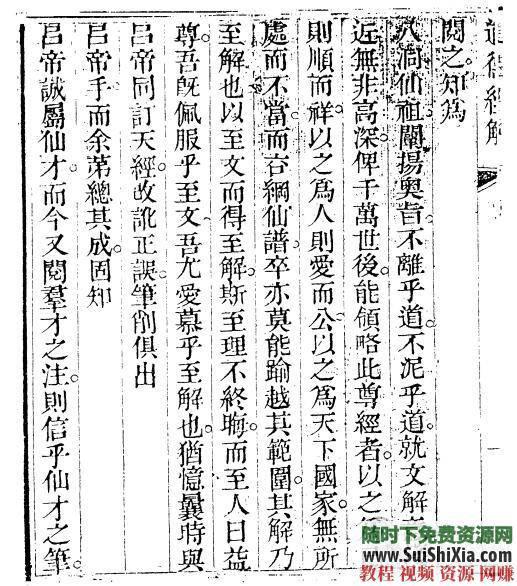 道德經解
閱之知為
八洞仙祖闡揚奧旨。不離乎道不泥乎道。就文解
近無非高深俾千萬世後。能領略此尊經者。以之
則順而祥以之爲人則愛而公。以之爲天下國家無所
處而不當。而綱仙譜卒亦莫能踰越其範圍。其解乃
至解也以至文而得至解。斯至理不終晦。而至人日益
尊吾旣佩服乎至文吾尤愛慕乎至解也。猶憶曩時與
呂帝同訂天經。改訛正誤。筆削俱出
呂帝手而余苐總其成。固知
呂帝誠屬仙才而今又閱羣才之注。則信乎仙才之筆
随时下免费资源网
www.SuiShiXia.com
教程 视频 资源 网赚